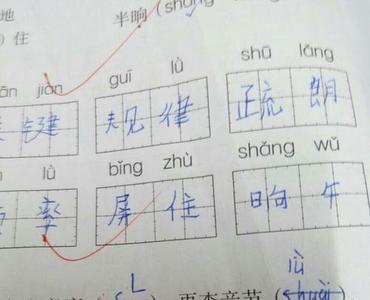 地 半晌(shǎng
)住
jiàn guī lǜ shū lǎng
键 规律 疏朗
lǜ bǐng zhù shǎng wǔ
率 屏住 晌午
lǜ
L
( ), 再查音节 (